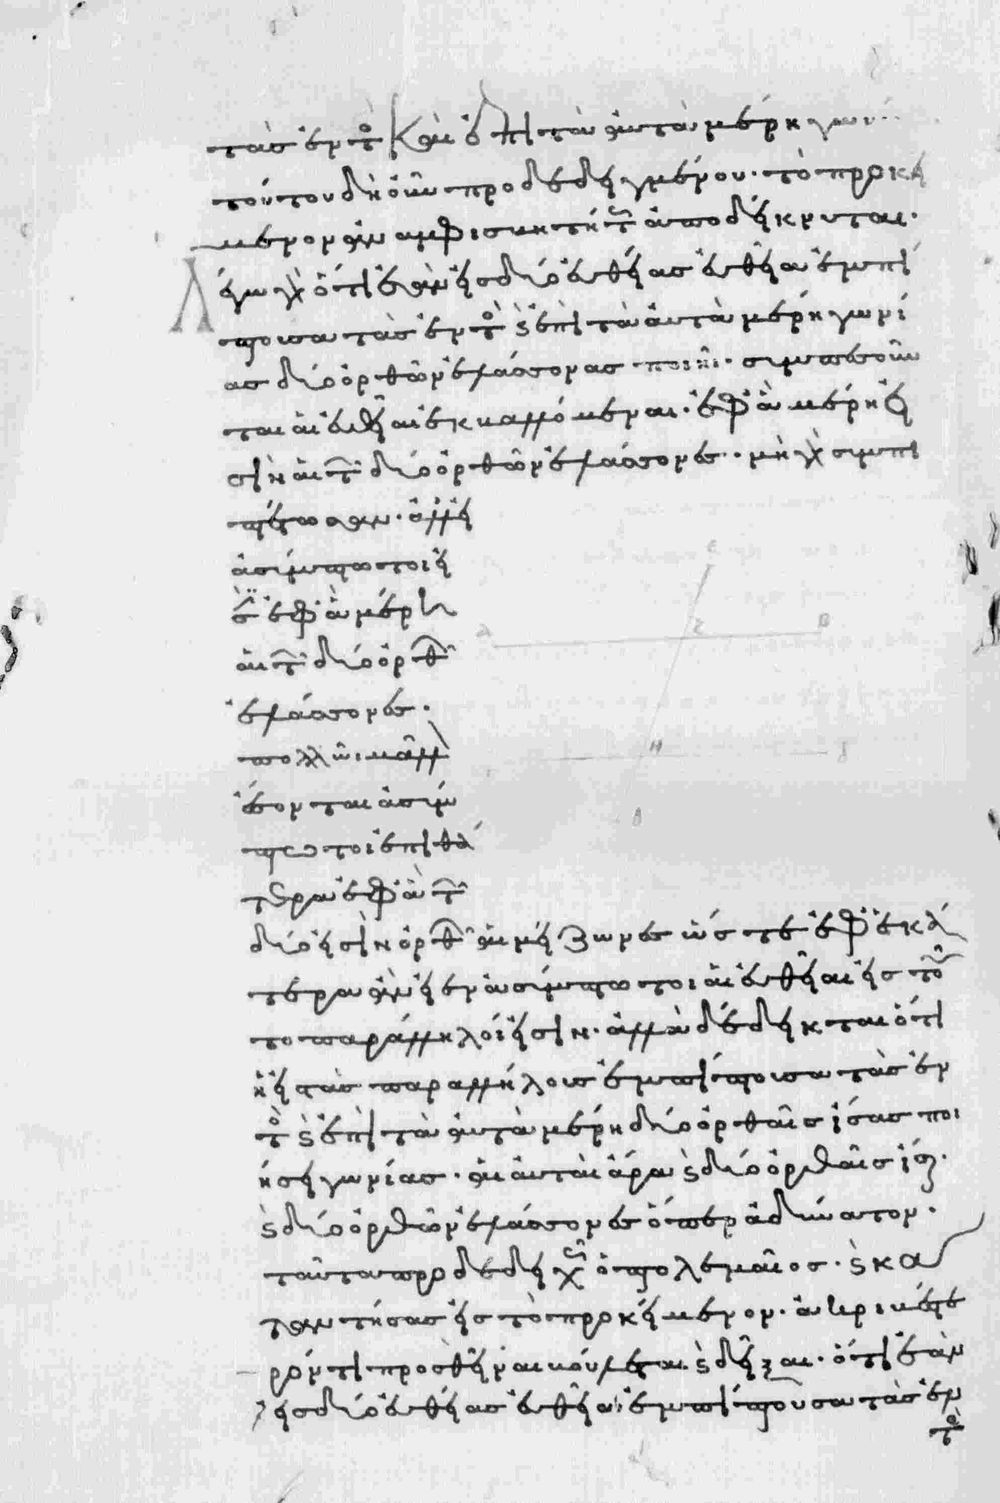 τὰς ἐντὸς καὶ ἐπὶ τὰ αὐτὰ μέρη γωνί
τούτου δὴ οὖν προδεδειγμένου· τὸ προκεί
μενον ἀναμφισβητήτως ἀποδείκνυται·
λέγω γὰρ ὅτι ἐὰν εἰς δύο εὐθείας εὐθεῖα ἐμπί
πτουσα τὰς ἐντὸς καὶ ἐπὶ τὰ αὐτὰ μέρη γωνί
ας δύο ὀρθῶν ἐλάσσονας ποιῆι· συμπεσοῦν
ται αἱ εὐθεῖαι ἐκβαλλόμεναι· ἐφ' ἃ μέρη εἰ
σὶν αἱ τῶν δύο ὀρθῶν ἐλάσσονες· μὴ γὰρ συμπι
πτέτωσαν· ἀλλ' εἰ
ἀσύμπτωτοί εἰ
σιν ἐφ' ἃ μέρη
αἱ τῶν δύο ὀρθῶν
ἐλάσσονες·
πολλῶι μᾶλλον
ἔσονται ἀσύμ
πτωτοι ἐπὶ θά
τερα ἐφ' ἃ τῶν
δύο εἰσὶν ὀρθῶν αἱ μείζωνες ὥστε ἐφ' ἑκά
τερα ἂν εἶεν ἀσύμπτωτοι αἱ εὐθεῖαι εἰ δὲ τοῦ
το παράλληλοί εἰσιν· ἀλλὰ δέδεικται ὅτι
ἡ εἰς τὰς παραλλήλους ἐμπίπτουσα τὰς ἐν
τὸς καὶ ἐπὶ τὰ αὐτὰ μέρη δύο ὀρθαῖς ἴσας ποι
ήσει γωνίας· αἱ αὐταὶ ἄρα καὶ δύο ὀρθαῖς ἴσαι·
καὶ δύο ὀρθῶν ἐλάσσονες ὅπερ ἀδύνατον·
ταῦτα προδεδειχὼς ὁ πτολεμαῖος· καὶ κα
ταντήσας εἰς τὸ προκείμενον· ἀκριβέστε
ρόν τι προσθεῖναι βούλεται καὶ δεῖξαι· ὅτι ἐὰν
εἰς δύο εὐθείας εὐθεῖα ἐμπίπτουσα τὰς ἐν
τὸς